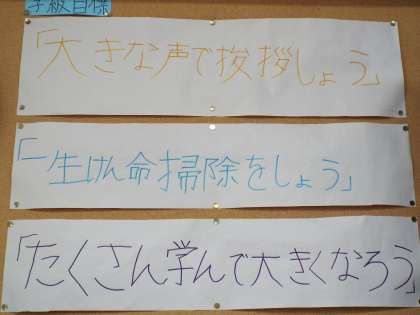 学級目標
「大きな声で挨拶しょう」
「一生けん命掃除をしょう」
「たくさん学んで大きくなろう」